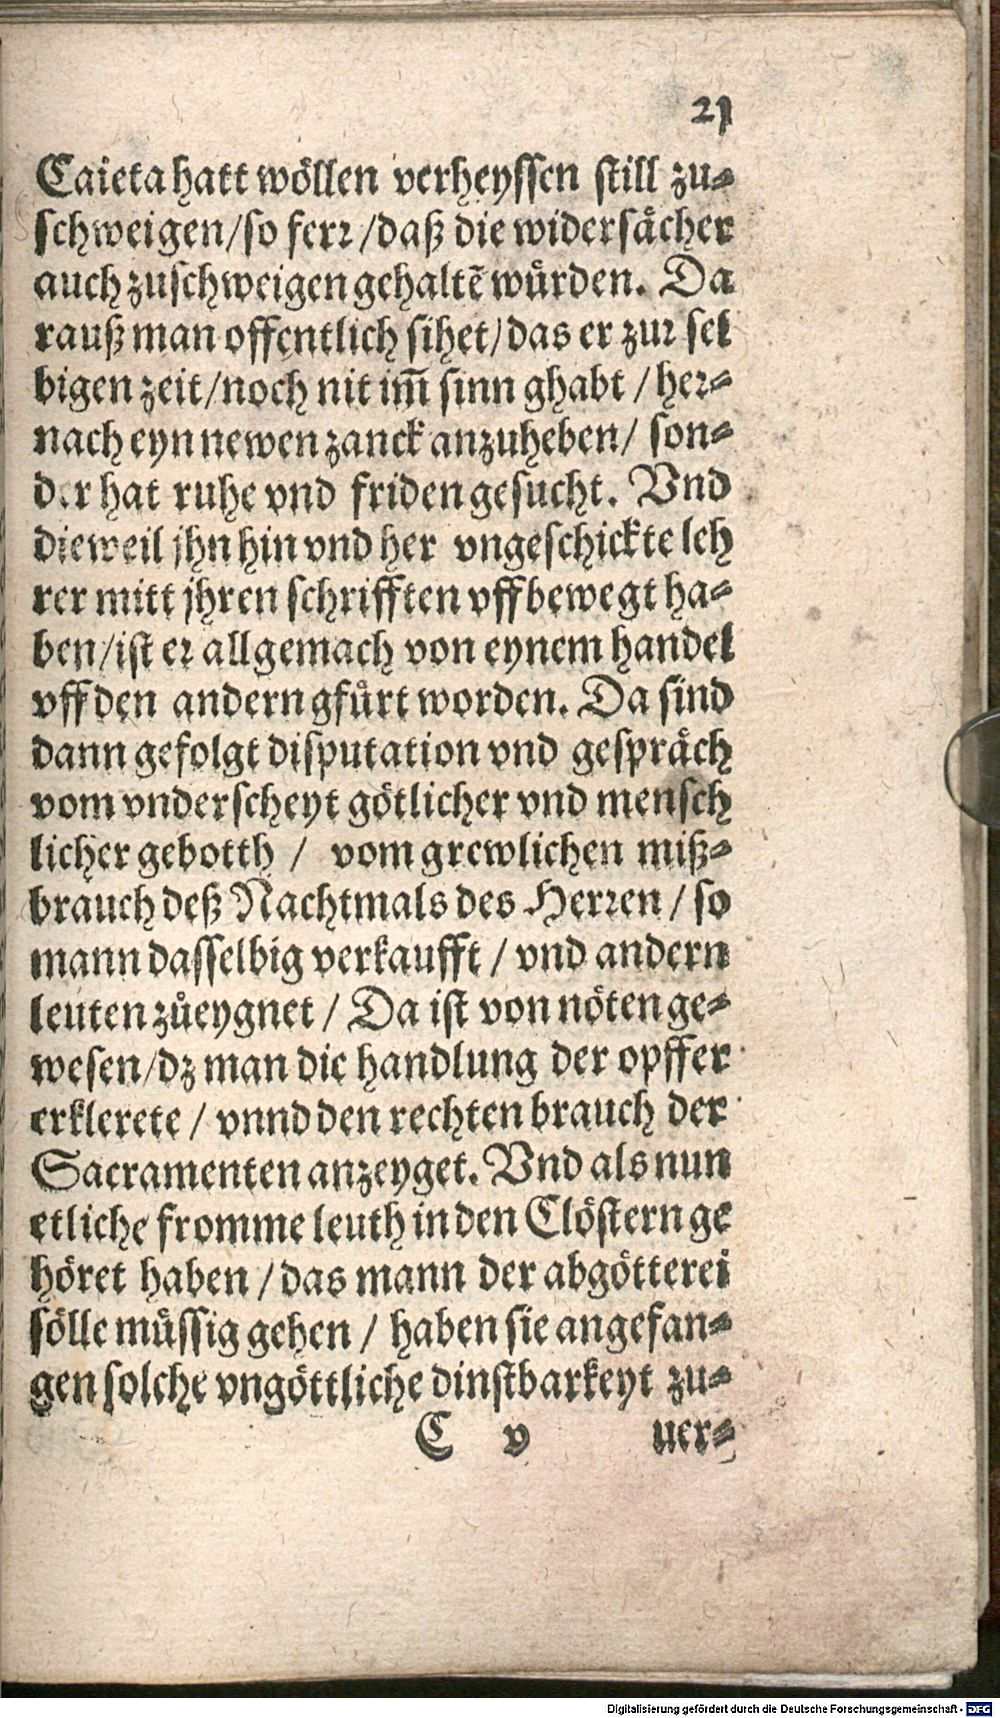 21
Caieta hatt wöllen verheyssen still zu⸗
schweigen/so ferꝛ/daß die widersächer
auch zuschweigen gehaltē würden. Da
rauß man offentlich sihet/das er zuꝛ sel
bigen zeit/noch nit im̄ sinn ghabt/heꝛ⸗
nach eyn newen zanck anzuheben/ son⸗
der hat ruhe vnd friden gesucht. Vnd
dieweil jhn hin vnd her vngeschickte leh
rer mitt jhren schrifften vffbewegt ha⸗
ben/ist eꝛ allgemach von eynem handel
vff den andern gfürt worden. Da sind
dann gefolgt disputation vnd gespräch
vom vnderscheyt götlicher vnd mensch
licher gebotth / vom grewlichen miß⸗
brauch deß Nachtmals des Herꝛen/so
mann dasselbig verkaufft/vnd andern
leuten zůeygnet/Da ist von nöten ge⸗
wesen/dz man die handlung der opffer
erklerete/vnnd den rechten brauch der
Sacramenten anzeyget. Vnd als nun
etliche fromme leuth in den Clöstern ge
höret haben/das mann der abgötterei
sölle müssig gehen/haben sie angefan⸗
gen solche vngöttliche dinstbarkeyt zu⸗
C v uer⸗
Digitalisierung gefördert durch die Deutsche Forschungsgemeinschaft - DFG